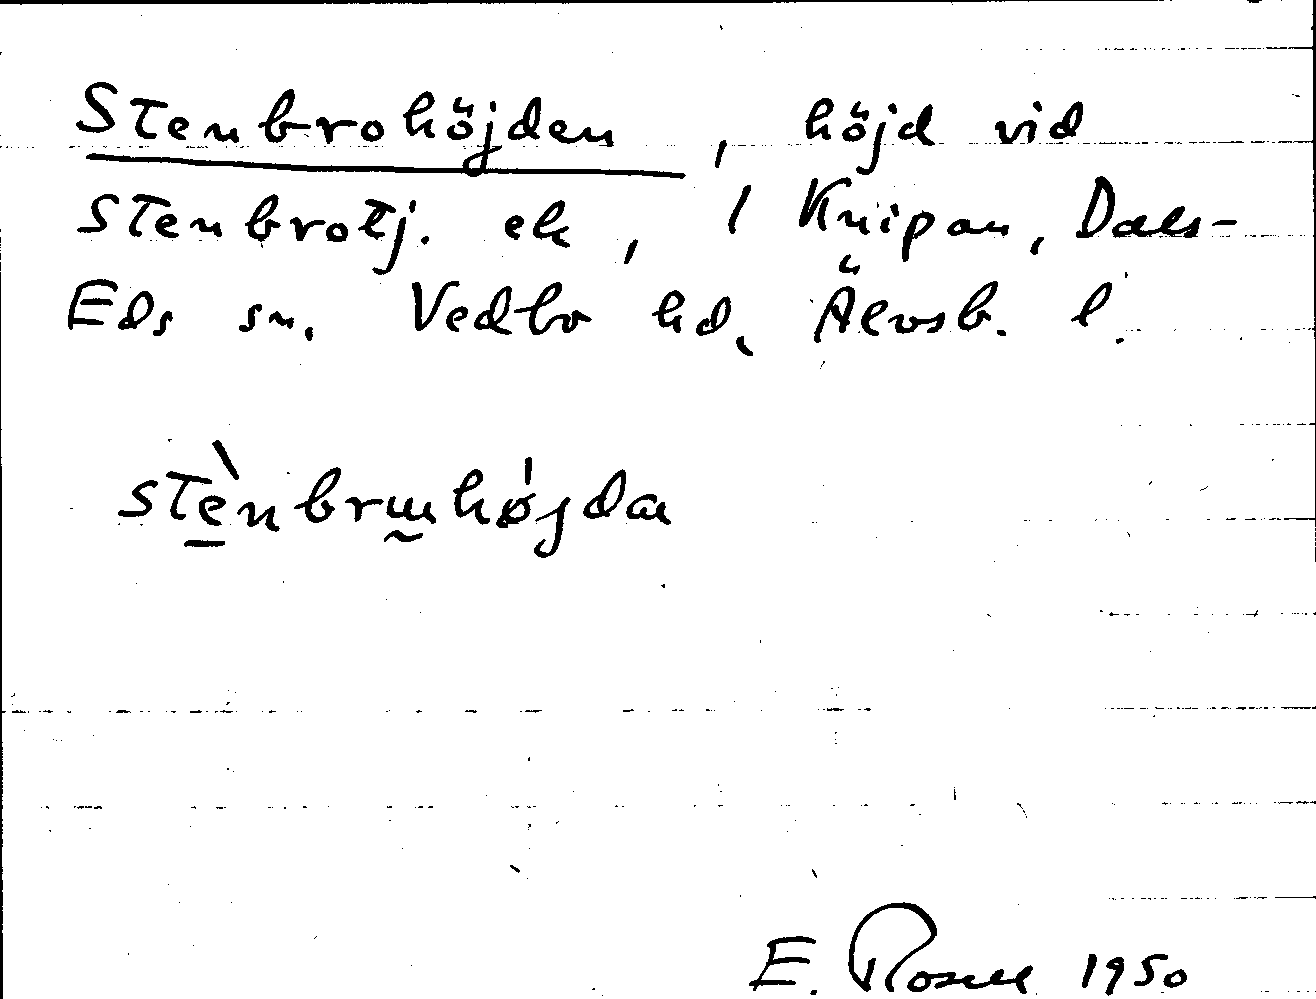 Stenbrohöjden, höjd vid
Stenbrotj. el, / Knipan, Dals-
Eds sn. Vedbo hd, Älvsb. l.
stè̱nbrɯ̰hǿjda
E. Rosell 1950